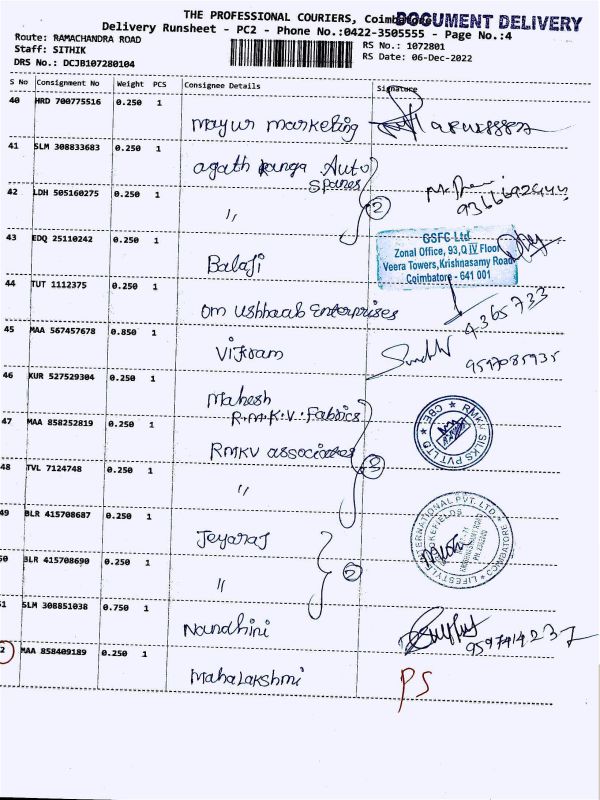 THE PROFESSIONAL COURIERS, Coimbatore
DOCUMENT DELIVERY
Delivery Runsheet - PC2 - Phone No.:0422-3505555 - Page No.:4
Route: RAMACHANDRA ROAD
RS No.: 1072801
Staff: SITHIK
RS Date: 06-Dec-2022
DRS No.: DCJB107280104
S No Consignment No Weight PCS Consignee Details Signature
40 HRD 700775516 0.250 1
Mayur marketing
41 SLM 308833683 0.250 1
agath Ranga Auto
Spares
42 LDH 505160275 0.250 1
〃 2
43 EDQ 25110242 0.250 1
Balaji
GSFC Ltd
Zonal Office, 93,Q IV Floor
Veera Towers,Krishnasamy Road
Coimbatore - 641 001
44 TUT 1112375 0.250 1
om Ushbaab Enterprises
4365733
45 MAA 567457678 0.850 1
Vikram
46 KUR 527529304 0.250 1
Mahesh
R.M.K.V. Fabrics
RMKV SILKS PVT LTD ★ CBE ★
47 MAA 858252819 0.250 1
RMKV associates
3
48 TVL 7124748 0.250 1
〃
49 BLR 415708687 0.250 1
Jeyaraj
LIFESTYLE INTERNATIONAL PVT. LTD. COIMBATORE
BROOKEFIELDS
50 BLR 415708690 0.250 1
〃 2
51 SLM 308851038 0.750 1
Nandhini
9597414237
2 MAA 858409189 0.250 1
Mahalakshmi
PS